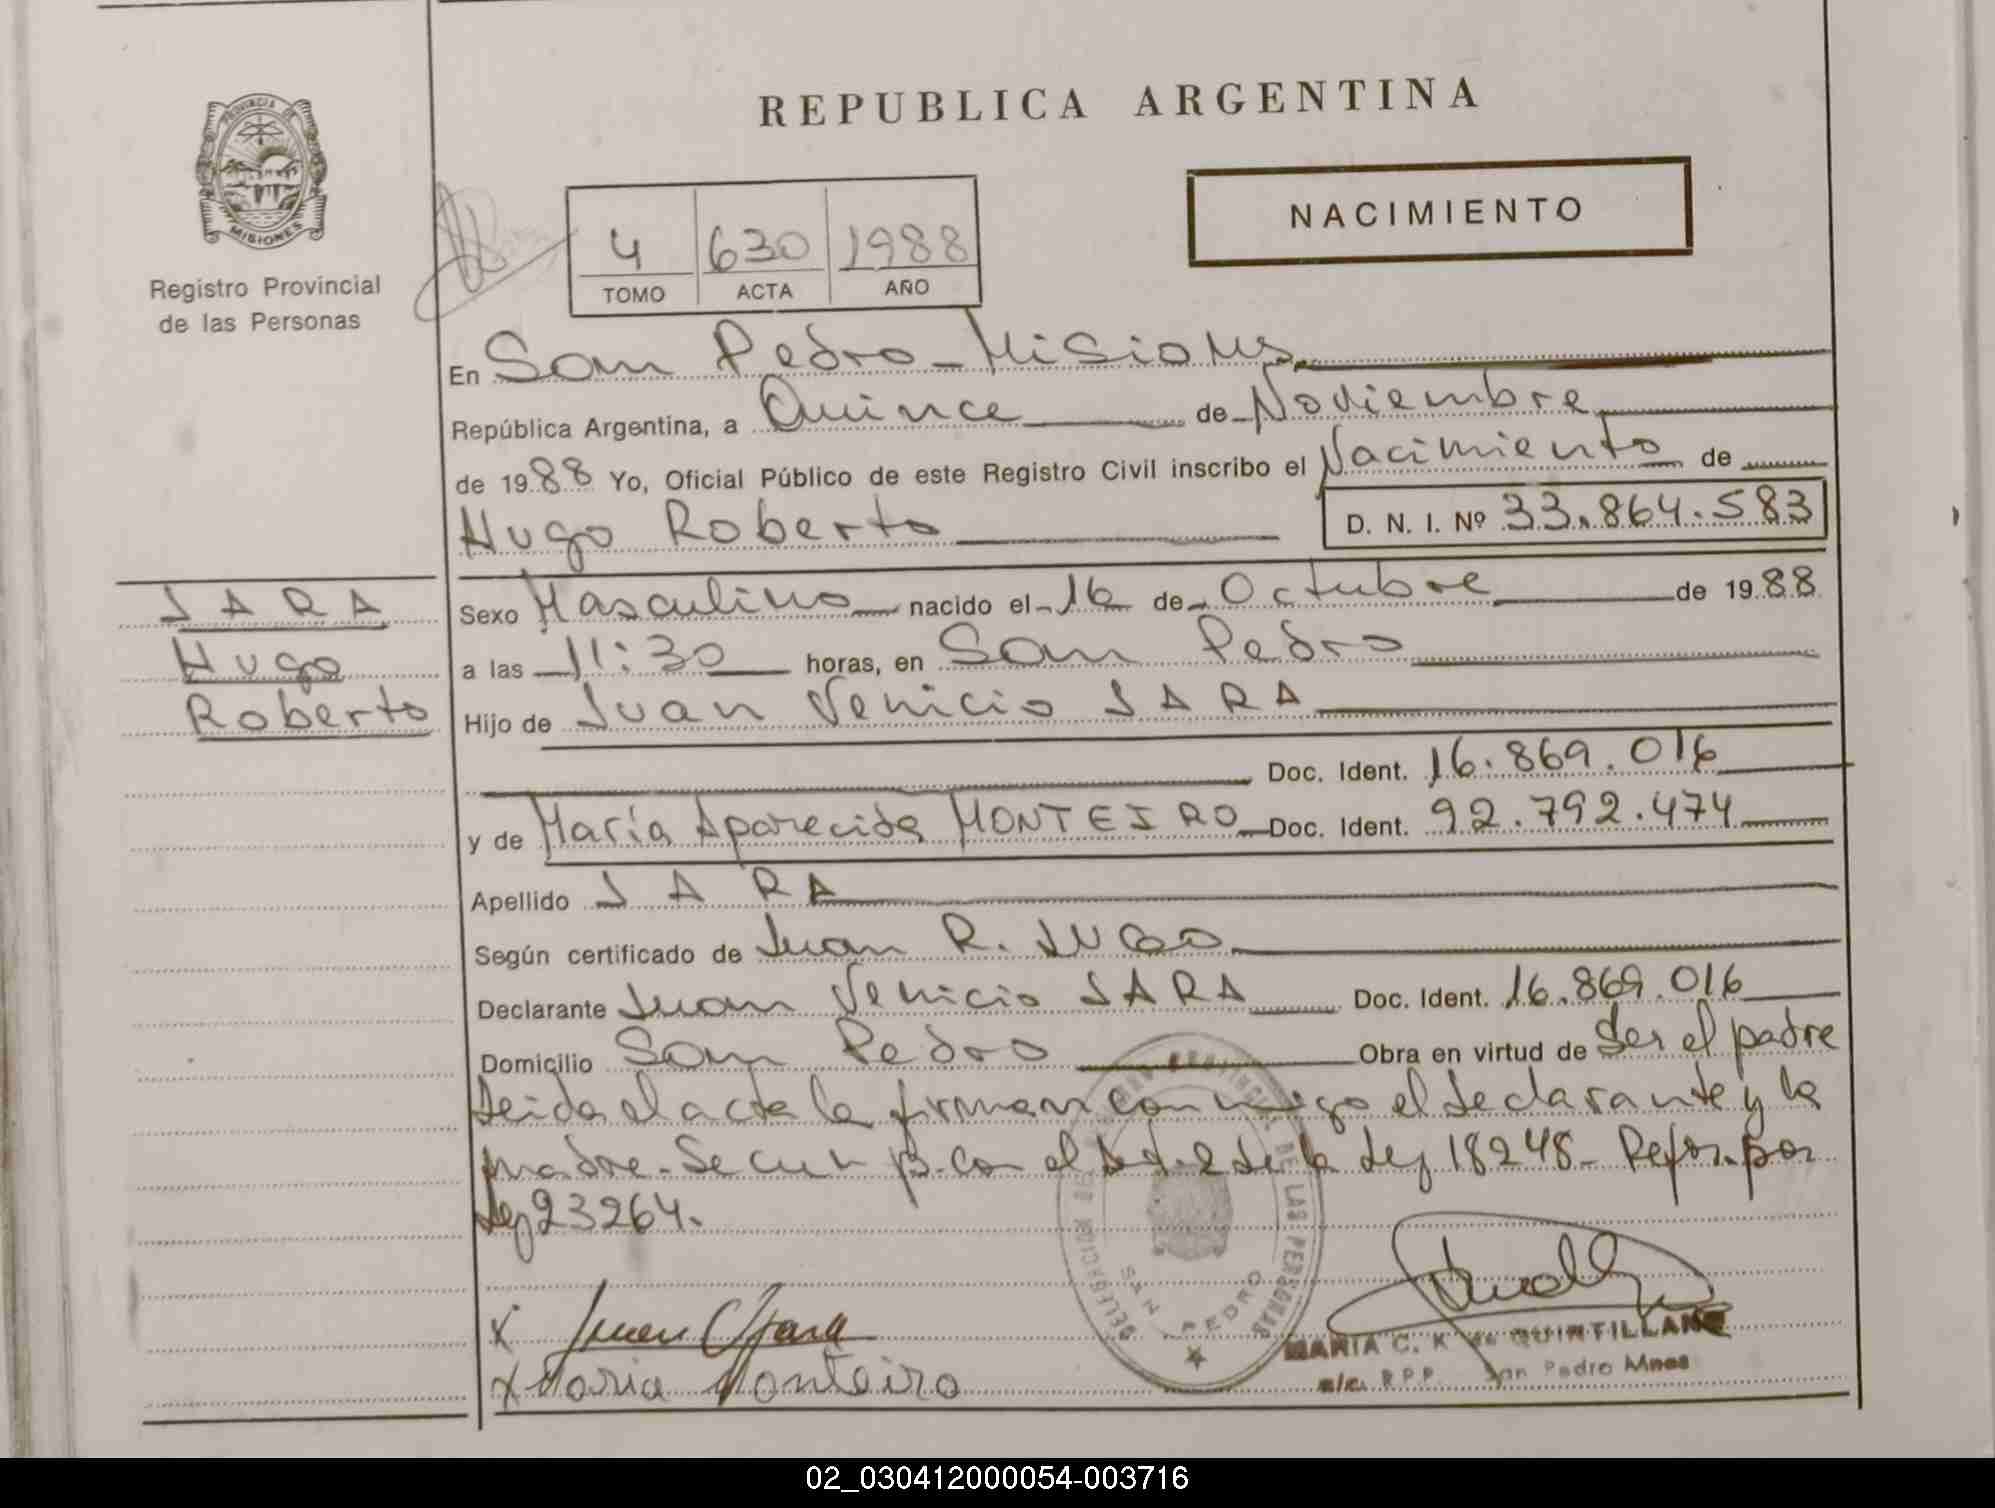 REPUBLICA ARGENTINA
PROVINCIA DE
MISIONES
Registro Provincial
de las Personas
NACIMIENTO
4 630 1988
TOMO ACTA AÑO
En San Pedro - Misiones
República Argentina, a Quince de Noviembre
de 1988 Yo, Oficial Público de este Registro Civil inscribo el Nacimiento de
Hugo Roberto D. N. I. Nº 33.864.583
JARA
Hugo
Roberto
Sexo Masculino nacido el 16 de Octubre de 1988
a las 11:30 horas, en San Pedro
Hijo de Juan Venicio JARA
Doc. Ident. 16.869.016
y de María Aparecida MONTEIRO Doc. Ident. 92.792.474
Apellido JARA
Según certificado de Juan R. LUGO
Declarante Juan Venicio JARA Doc. Ident. 16.869.016
Domicilio San Pedro Obra en virtud de ser el padre
Leida el acta la firman conmigo el declarante y la
madre. Se cump. con el de la Ley 18248 - Refor. por
Ley 23264.
REGISTRO PROVINCIAL DE LAS PERSONAS
DELEGACION
SAN PEDRO
X Juan Jara
X Maria Monteiro
MARIA C. K. de QUINTILLAN
a/c. R.P.P. San Pedro Mnes
02_030412000054-003716